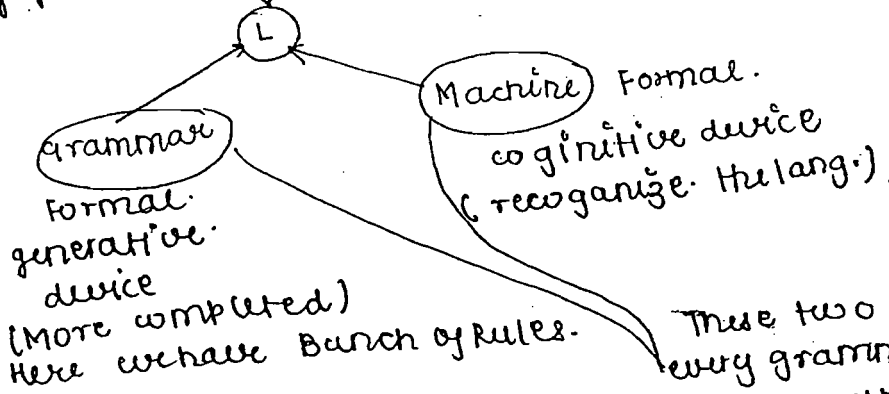 L
Machine Formal.
coginitive device
(recoganize. the lang.)
Grammar
Formal.
generative.
device
(More completed)
Here we have Bunch of Rules.
These two
every gramm